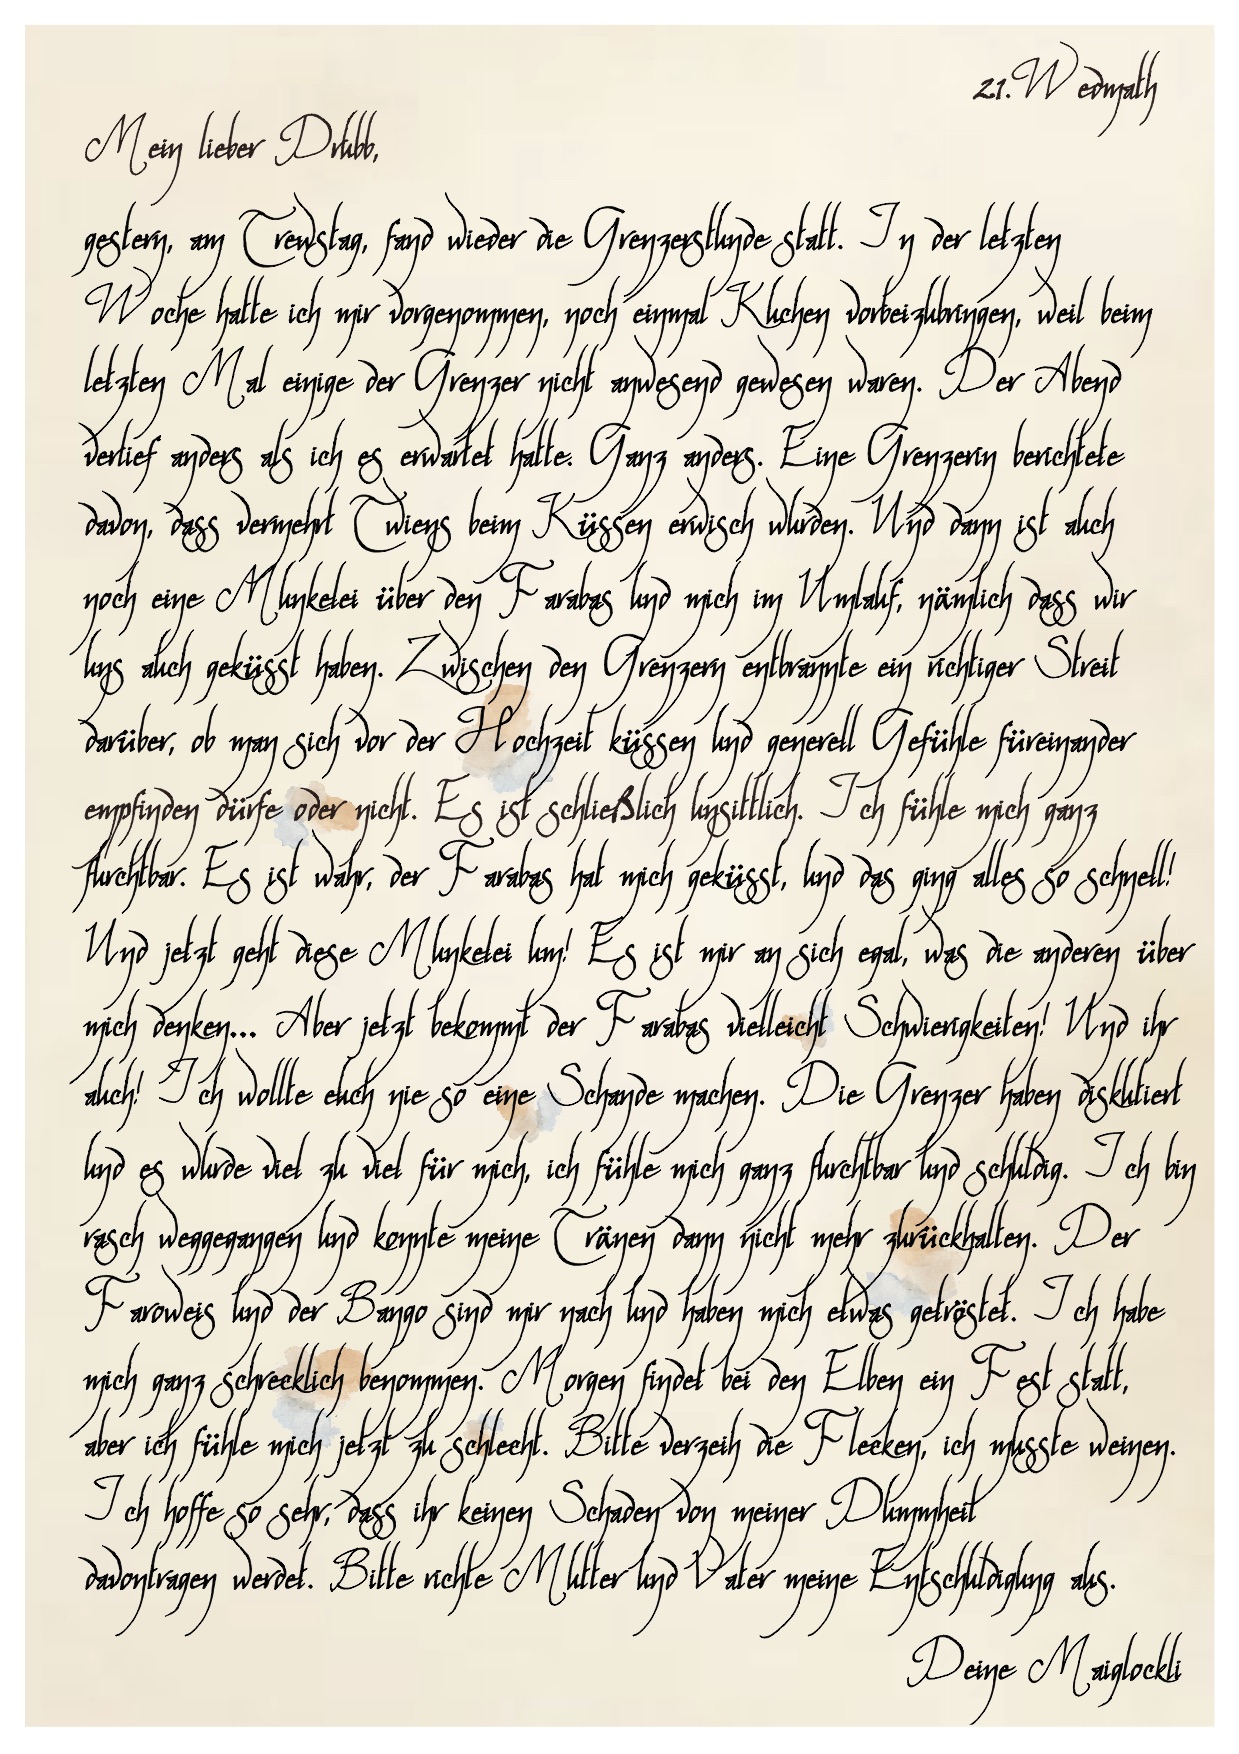 21. Wedmath
Mein lieber Drubb,
gestern, am Trewstag, fand wieder die Grenzerstunde statt. In der letzten
Woche hatte ich mir vorgenommen, noch einmal Kuchen vorbeizubringen, weil beim
letzten Mal einige der Grenzer nicht anwesend gewesen waren. Der Abend
verlief anders als ich es erwartet hatte. Ganz anders. Eine Grenzerin berichtete
davon, dass vermehrt Twiens beim Küssen erwisch wurden. Und dann ist auch
noch eine Munkelei über den Farabas und mich im Umlauf, nämlich dass wir
uns auch geküsst haben. Zwischen den Grenzern entbrannte ein richtiger Streit
darüber, ob man sich vor der Hochzeit küssen und generell Gefühle füreinander
empfinden dürfe oder nicht. Es ist schließlich unsittlich. Ich fühle mich ganz
furchtbar. Es ist wahr, der Farabas hat mich geküsst, und das ging alles so schnell!
Und jetzt geht diese Munkelei um! Es ist mir an sich egal, was die anderen über
mich denken... Aber jetzt bekommt der Farabas vielleicht Schwierigkeiten! Und ihr
auch! Ich wollte euch nie so eine Schande machen. Die Grenzer haben diskutiert
und es wurde viel zu viel für mich, ich fühle mich ganz furchtbar und schuldig. Ich bin
rasch weggegangen und konnte meine Tränen dann nicht mehr zurückhalten. Der
Faroweis und der Bango sind mir nach und haben mich etwas getröstet. Ich habe
mich ganz schrecklich benommen. Morgen findet bei den Elben ein Fest statt,
aber ich fühle mich jetzt zu schlecht. Bitte verzeih die Flecken, ich musste weinen.
Ich hoffe so sehr, dass ihr keinen Schaden von meiner Dummheit
davontragen werdet. Bitte richte Mutter und Vater meine Entschuldigung aus.
Deine Maiglöckli